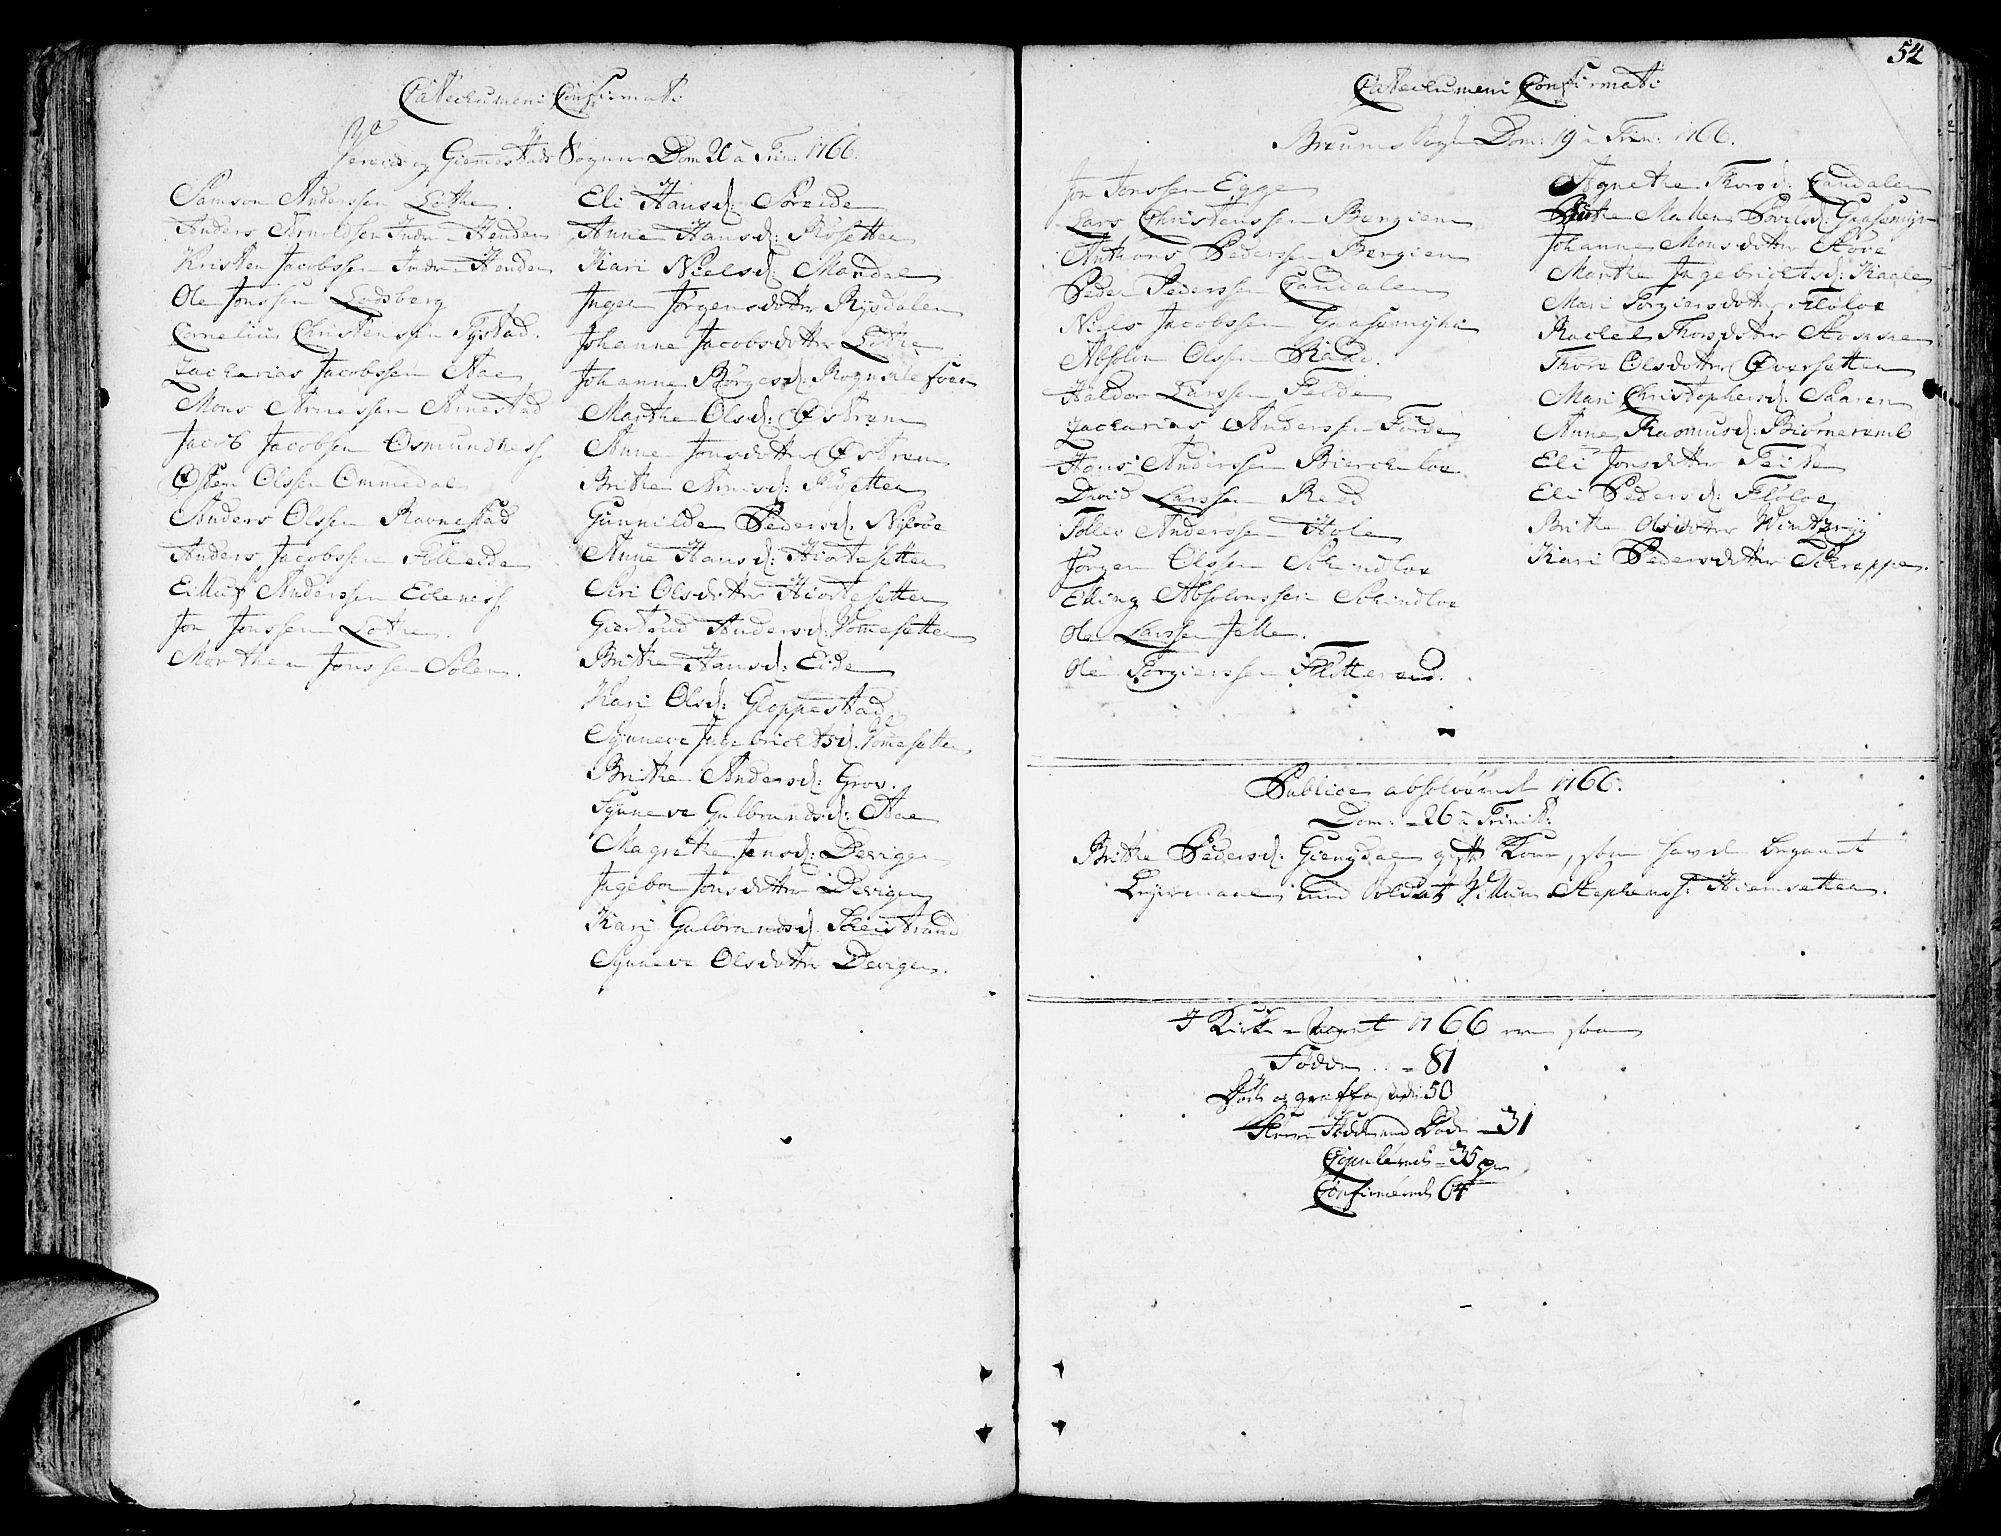 Catechumeni Confirmati
Vereids og Giemestads Sogner Dom 20 a Trin: 1766.
Samson Anderssen Lothe.
Anders Arnoldsen Indre-Henden
Kristen Jacobssen Indre-Henden
Ole Jonssen Lodsberg
Cornelius Christensen Tystad.
Zacharias Jacobssen Aae
Mons Arnessen Arnestad
Jacob Jacobsen Osmundness
Østen Olssen Ommedal
Anders Olssen Ravnestad
Anders Jacobssen Følleide
Eilluf Anderssen Eideness
Jon Jonssen Lothe.
Morthen Jonssen Solem.
Eli Hansd: Søreide
Anne Hansd: Røsetter
Kari Nielsd: Mandal
Inger Jørgensdotter Rysdalen
Johanne Jacobsdotter Lothe
Johanne Børgesd:
Marthe Olsd: Østrem
Anne Jonsdotter Østrem
Brithe Arnisd: Fløsetter
Gunnilde Pedersd: Nyløve
Anne Hansd: Hiortesetter
Siri Olsdotter Hiortesetter
Giertrud Andersd: Vomesetter
Brithe Hansd: Eide
Kari Olsd: Gloppestad
Synneve Ingebrichtsd: Vomesetter
Brithe Andersd: Grov.
Synneve Gulbrandsd: Aae
Magrethe Jensd: Devigen
Ingebor Jonsdotter Devigen
Kari Gulbrandsd: Scheistrand
Synneve Olsdotter Devigen.
54
Catechumeni Confirmati
Breums Sogn Dom: 19 a Trin: 1766.
Jon Jonssen Egge
Lars Christenssen Bergien
Anthons Pederssen Bergien
Peder Peierssen Sandalen
Niels Jacobssen Gaasemyhr
Absolon Olssen Raad.
Haldor Larssen Felde
Zacharias Anderssen Førde
Hans Anderssen Bierchloe.
David Larssen Reed
Tolles Anderssen Hole
Jørgen Olssen Schindloe
Elling Absolonssen Schindloe
Ole Larssen Felle.
Ole Torgierssen Flittereid.
Agnethe Thorsd: Sandalen
Birthe Malhen Povelsd: Gaasemyr
Johanne Monsdotter Støve
Marthe Ingebrichtsd: Kaale
Mari Torgiersdotter Fløloe
Rachel Thorsdotter Stokke
Thore Olsdotter Øversetter
Mari Christophersd: Saaren
Anne Rasmusd: Biørneremb
Eli Jonsdotter Feite
Eli Pedersd: Fløloe
Brithe Olsdotter
Kari Pedersdotter Schreppe.
Publice absolverede 1766.
Dom: 26 a Trinit:
Brithe Pedersd: Giengedal gift Kone, som havde begaaet
Leyermaal med Soldat Villum Stephenss: Hiemsetter.
I Kirke-Aaret 1766 ere som
Fødde .. - 81
Døde og grafferede: 50
Flere Fødde end Døde - 31
Copulerede - 35 par
Confirmerede 64